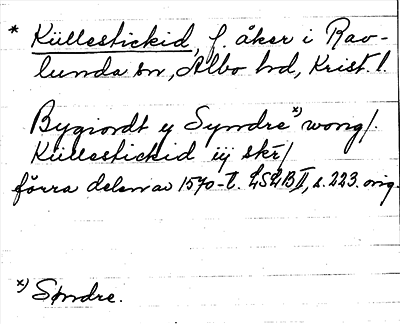 * Küllestickid, f. åker i Rav-
lunda sn, Albo hd, Krist. l.
Bygiordt y Syndre x) wong/.
Küllestickid iij skr/
förra delen av 1570-t. LSLB II, s. 223. orig.
x) Søndre.